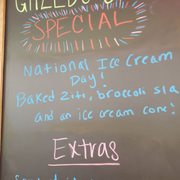 SPECIAL
National Ice Cream
Day!
Baked Ziti, broccoli sla
and an ice cream cone!
Extras